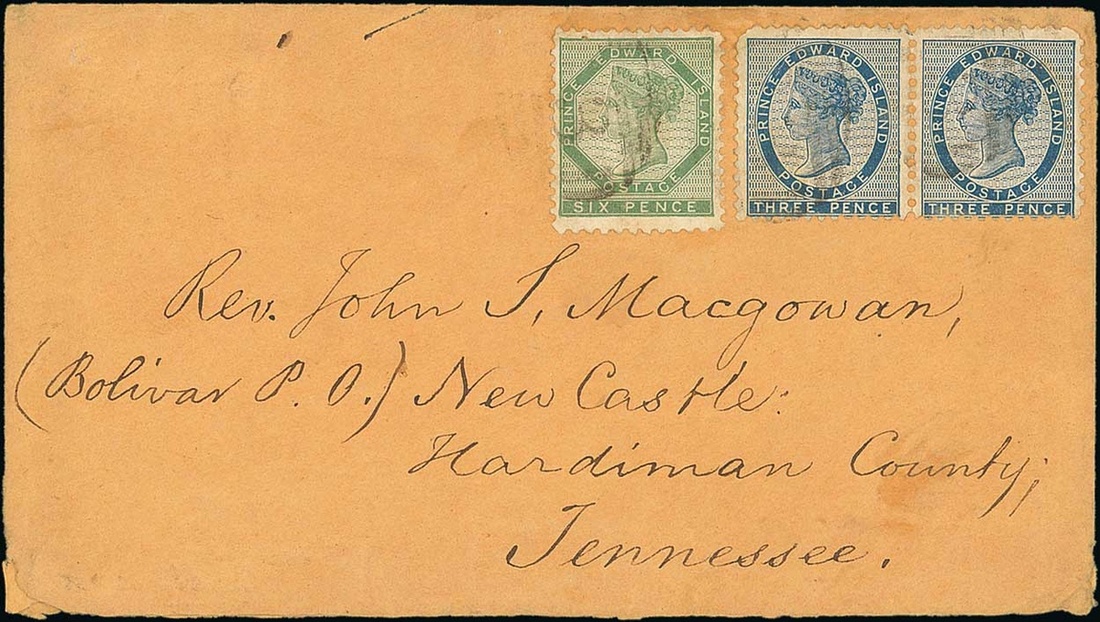 PRINCE EDWARD ISLAND
POSTAGE
SIX PENCE
PRINCE EDWARD ISLAND
POSTAGE
THREE PENCE
PRINCE EDWARD ISLAND
POSTAGE
THREE PENCE
Rev. John S. Macgowan,
(Bolivar P. O.) New Castle:
Hardiman County;
Tennessee.